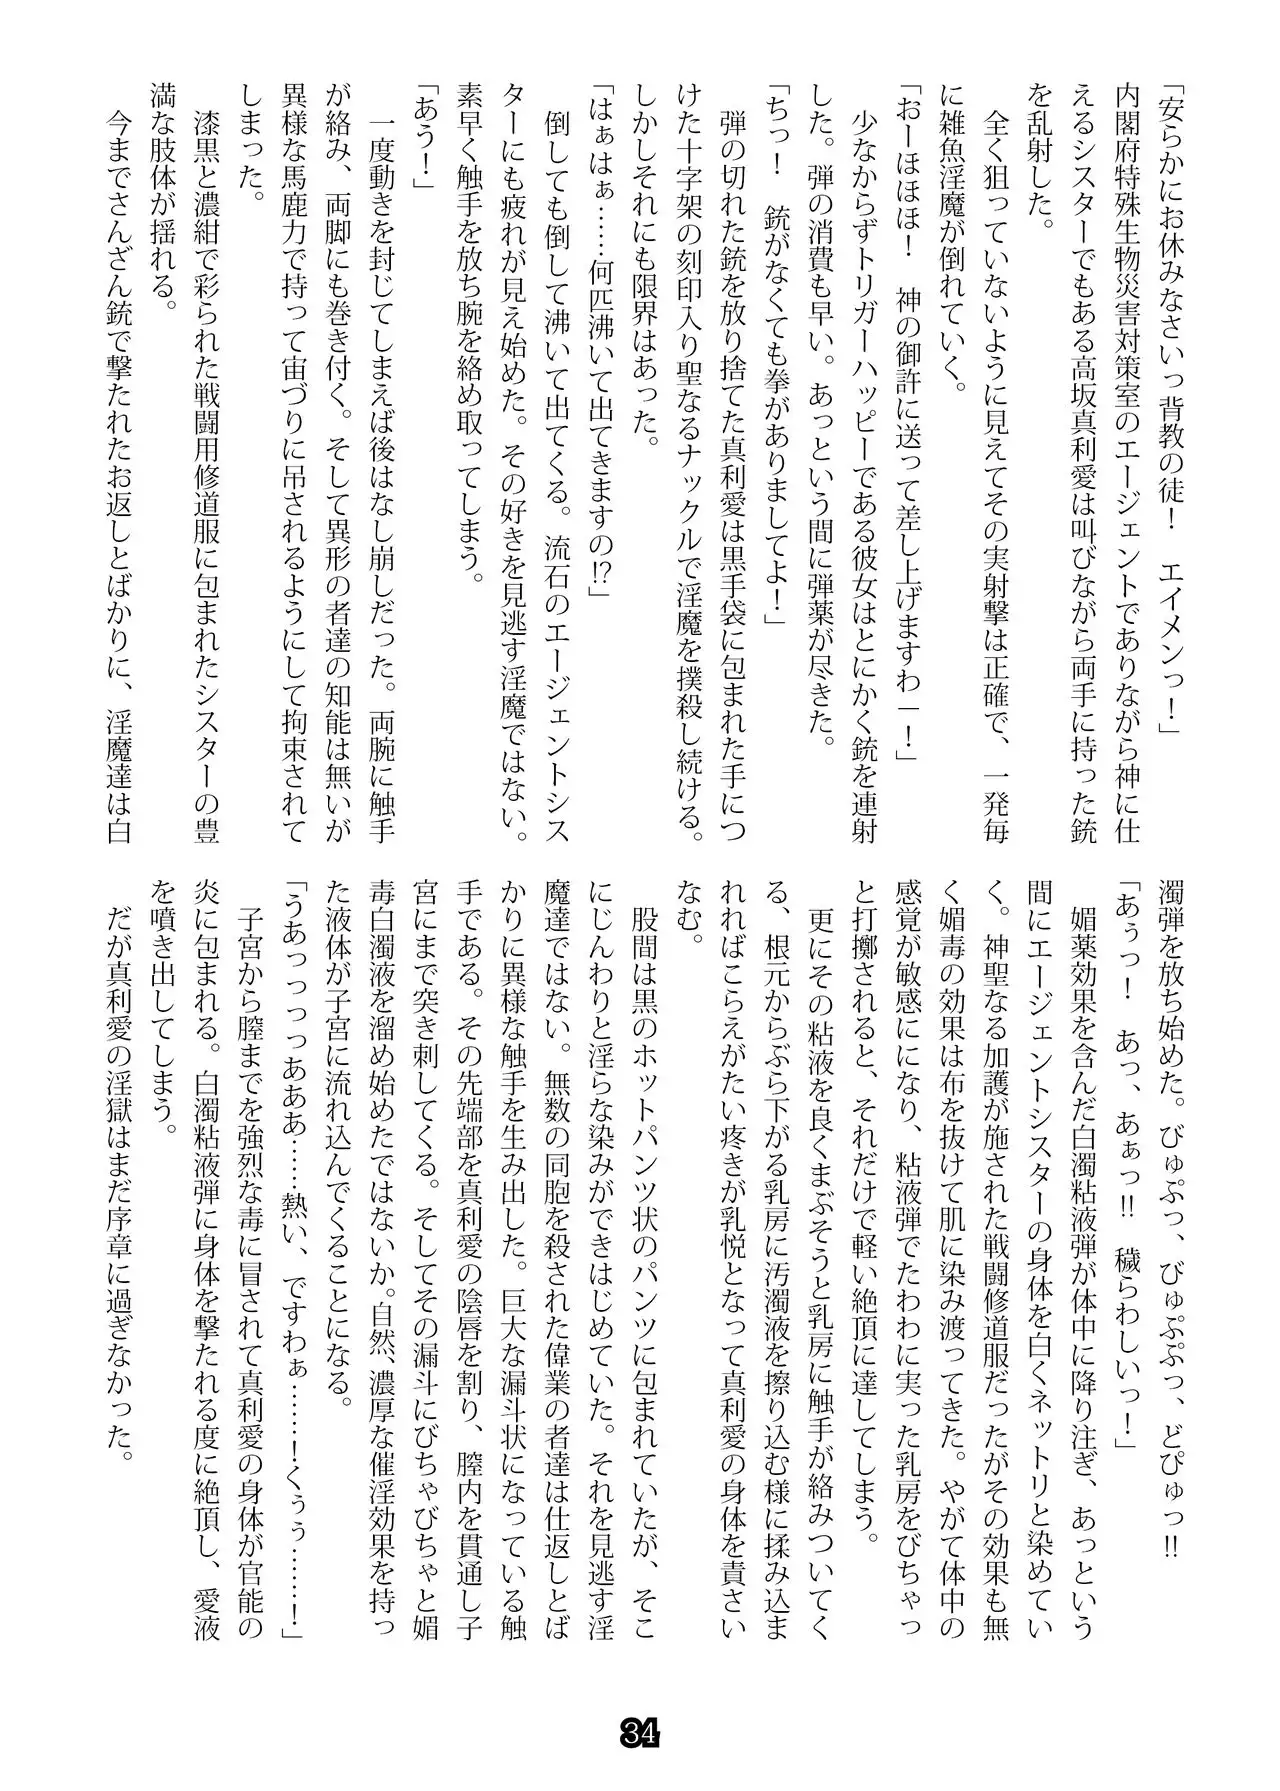 「安らかにお休みなさいっ背教の徒！　エイメンっ！」
内閣府特殊生物災害対策室のエージェントでありながら神に仕
えるシスターでもある高坂真利愛は叫びながら両手に持った銃
を乱射した。
　全く狙っていないように見えてその実射撃は正確で、一発毎
に雑魚淫魔が倒れていく。
「おーほほほ！　神の御許に送って差し上げますわー！」
　少なからずトリガーハッピーである彼女はとにかく銃を連射
した。弾の消費も早い。あっという間に弾薬が尽きた。
「ちっ！　銃がなくても拳がありましてよ！」
　弾の切れた銃を放り捨てた真利愛は黒手袋に包まれた手につ
けた十字架の刻印入り聖なるナックルで淫魔を撲殺し続ける。
しかしそれにも限界はあった。
「はぁはぁ……何匹沸いて出てきますの!?」
　倒しても倒して沸いて出てくる。流石のエージェントシス
ターにも疲れが見え始めた。その好きを見逃す淫魔ではない。
素早く触手を放ち腕を絡め取ってしまう。
「あう！」
　一度動きを封じてしまえば後はなし崩しだった。両腕に触手
が絡み、両脚にも巻き付く。そして異形の者達の知能は無いが
異様な馬鹿力で持って宙づりに吊されるようにして拘束されて
しまった。
　漆黒と濃紺で彩られた戦闘用修道服に包まれたシスターの豊
満な肢体が揺れる。
　今までさんざん銃で撃たれたお返しとばかりに、淫魔達は白
濁弾を放ち始めた。びゅぷっ、びゅぷぷっ、どぴゅっ!!
「あぅっ！　あっ、あぁっ!!　穢らわしいっ！」
　媚薬効果を含んだ白濁粘液弾が体中に降り注ぎ、あっという
間にエージェントシスターの身体を白くネットリと染めてい
く。神聖なる加護が施された戦闘修道服だったがその効果も無
く媚毒の効果は布を抜けて肌に染み渡ってきた。やがて体中の
感覚が敏感にになり、粘液弾でたわわに実った乳房をびちゃっ
と打擲されると、それだけで軽い絶頂に達してしまう。
　更にその粘液を良くまぶそうと乳房に触手が絡みついてく
る、根元からぶら下がる乳房に汚濁液を擦り込む様に揉み込ま
れればこらえがたい疼きが乳悦となって真利愛の身体を責さい
なむ。
　股間は黒のホットパンツ状のパンツに包まれていたが、そこ
にじんわりと淫らな染みができはじめていた。それを見逃す淫
魔達ではない。無数の同胞を殺された偉業の者達は仕返しとば
かりに異様な触手を生み出した。巨大な漏斗状になっている触
手である。その先端部を真利愛の陰唇を割り、膣内を貫通し子
宮にまで突き刺してくる。そしてその漏斗にびちゃびちゃと媚
毒白濁液を溜め始めたではないか。自然、濃厚な催淫効果を持っ
た液体が子宮に流れ込んでくることになる。
「うあっっっっあああ……熱い、ですわぁ……！くぅぅ……！」
　子宮から膣までを強烈な毒に冒されて真利愛の身体が官能の
炎に包まれる。白濁粘液弾に身体を撃たれる度に絶頂し、愛液
を噴き出してしまう。
　だが真利愛の淫獄はまだ序章に過ぎなかった。
34